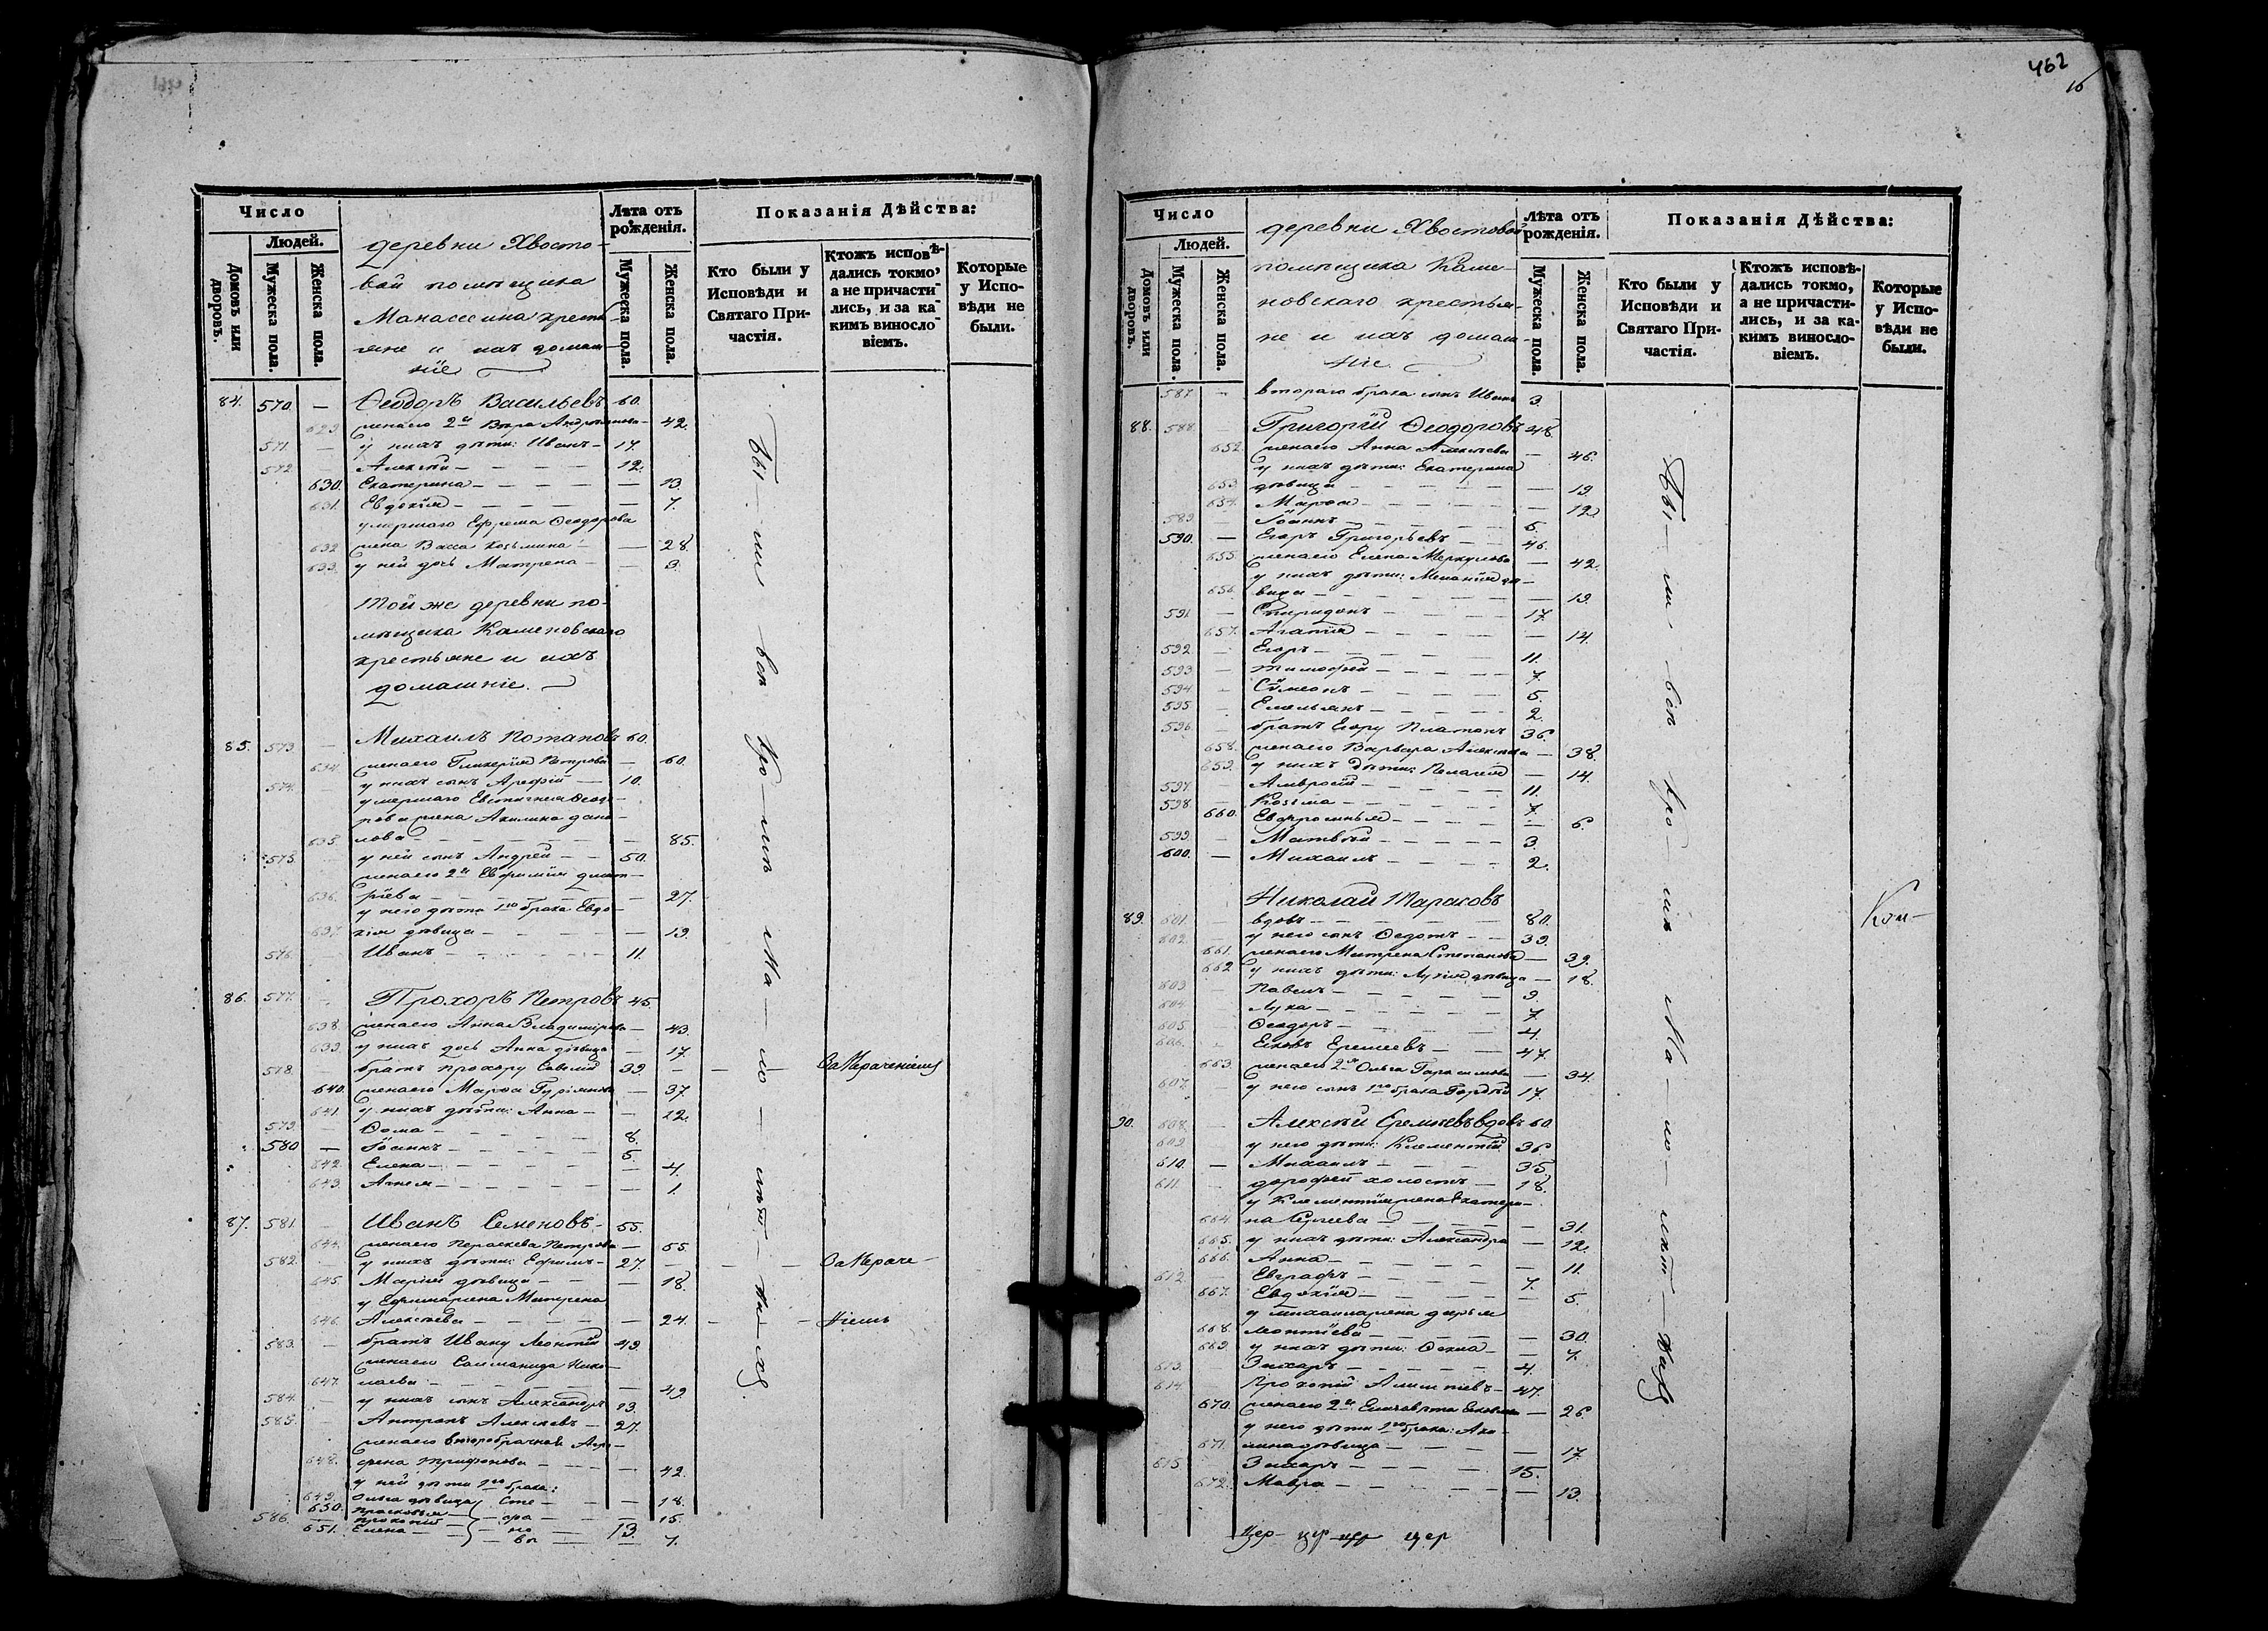 462
16
Число
Людей.
Домовъ или дворовъ.
Мужеска пола.
Женска пола.
деревни Хвосто-
вой помѣщика
Манассеина крестья
яне и ихъ домаш
ніе
Лѣта отъ рожденія.
Мужеска пола.
Женска пола.
Показанія Дѣйства:
Кто были у Исповѣди и Святаго При-частія.
Ктожъ исповѣ-дались токмо, а не причасти-лись, и за ка-кимъ винослo-віемъ.
Которые у Испо-вѣди не были.
84. 570. — Ѳеодоръ Васильевъ 60.
629. жена его 2я Вѣра Андреянова — 42.
571. — у нихъ дѣти: Иванъ — 17.
572. — Алексѣй — 12.
630. Екатерина — 13.
631. Евдокія — 7.
умершаго Ефрема Ѳеодорова
632. жена Васса Козьмина — 28.
633. у ней дочь Матрена — 3.
Той же деревни по-
мѣщика Каменовскаго
крестьяне и ихъ
домашніе.
85. 573. — Михаилъ Потаповъ 60.
634. жена его Гликерія Петрова — 60.
574. — у нихъ сынъ Арефій — 10.
умершаго Евстигнея Ѳеодо-
рова жена Акилина Дани-
635. лова — 85.
575. у ней сынъ Андрей — 50.
жена его 2я Евфимія Дмит-
636. ріева — 27.
у него дѣти 1го брака Евдо-
637. кія дѣвица — 19.
576. Иванъ — 11.
86. 577. — Прохоръ Петровъ 45.
638. жена его Анна Владимірова — 43.
639. у нихъ дочь Анна дѣвица — 17.
578. — братъ Прохору Савелій 39. — — За Отлученіемъ
640. жена его Марѳа — 37.
641. у нихъ дѣти: Анна — 12.
579. — Ѳома — 8.
580. — Іоаннъ — 5.
642. Елена — 4.
643. Агнія — 1.
87. 581. — Иванъ Семеновъ — 55.
644. жена его Параскева Петрова — 55.
582. — у нихъ дѣти: Ефимъ — 27.
645. Марія дѣвица — 18.
у Ефима жена Матрена
646. Алексѣева — 24.
583. — братъ Ивану Леонтій 49.
жена его Соломанида Нико-
647. лаева — 49.
584. — у нихъ сынъ Александръ 13.
585. — Антропъ Алексѣевъ — 27.
жена его второбрачная Агри-
648. фена Трифонова — 42.
у ней дѣти 1го брака:
649. Ольга дѣвица — 18.
650. Прасковья — 15.
586. Прокопій — 13.
651. Елена — 7.
Бы — ли всѣ кро — мѣ ма — ло — лѣт — ныхъ.
Число
Людей.
Домовъ или дворовъ.
Мужеска пола.
Женска пола.
деревни Хвостовой
помѣщика Каме-
новскаго крестья-
не и ихъ домаш
ніе.
Лѣта отъ рожденія.
Мужеска пола.
Женска пола.
Показанія Дѣйства:
Кто были у Исповѣди и Святаго При-частія.
Ктожъ исповѣ-дались токмо, а не причасти-лись, и за ка-кимъ винослo-віемъ.
Которые у Испо-вѣди не были.
587. — втораго брака сынъ Иванъ 3.
88. 588. — Григорій Ѳеодоровъ 48.
652. жена его Анна Алексѣева — 46.
у нихъ дѣти: Екатерина
653. дѣвица — 19.
654. Марѳа — 12.
589. Іоаннъ — 5.
590. — Егоръ Григорьевъ — 46.
655. жена его Елена Меркулова — 42.
у нихъ дѣти: Меланія дѣ-
656. вица — 19.
591. — Спиридонъ — 17.
657. Агафія — 14.
592. — Егоръ — 11.
593. — Тимофей — 7.
594. — Сѵмеонъ — 5.
595. — Емельянъ — 2.
596. — братъ Егору Платонъ 36.
658. жена его Варвара Алексѣева — 38.
659. у нихъ дѣти: Пелагея — 14.
597. — Амвросій — 11.
598. — Козьма — 7.
660. Евфросинья — 6.
599. — Матвѣй — 3.
600. — Михаилъ — 2.
Николай Тарасовъ
89. 601. — вдовъ — 80.
602. — у него сынъ Ѳедотъ — 39.
661. жена его Матрена Степанова — 39.
662. у нихъ дѣти: Лукія дѣвица — 18.
603. — Павелъ — 9.
604. — Лука — 7.
605. — Ѳеодоръ — 4.
606. — Еремеевъ — 47.
663. жена его 2я Ольга Герасимова — 34.
607. — у него сынъ 1го брака Гордѣй 17.
90. 608. — Алексѣй Еремѣевъ вдовъ 60.
609. у него дѣти: Климентій 36.
610. — Михаилъ — 35.
611. — Дорофей холостъ — 18.
у Климентія жена Екатери-
664. на Сергеева — 31.
665. у нихъ дѣти: Александра — 12.
666. Анна — 11.
612. Евграфъ — 7.
667. Евдокія — 5.
у Михаила жена Дарья
668. Леонтіева — 30.
669. у нихъ дѣти: Ѳекла — 7.
613. Захаръ — 4.
614. Прокопій — 47.
670. жена его 2я Елизавета — 26.
у него дѣти 1го брака: Аку-
671. лина дѣвица — 17.
615. Захаръ — 15.
672. Мавра — 13.
Бы — ли всѣ кро — мѣ ма — ло — лѣт — ныхъ.
Кон-
цер- цр цер цер